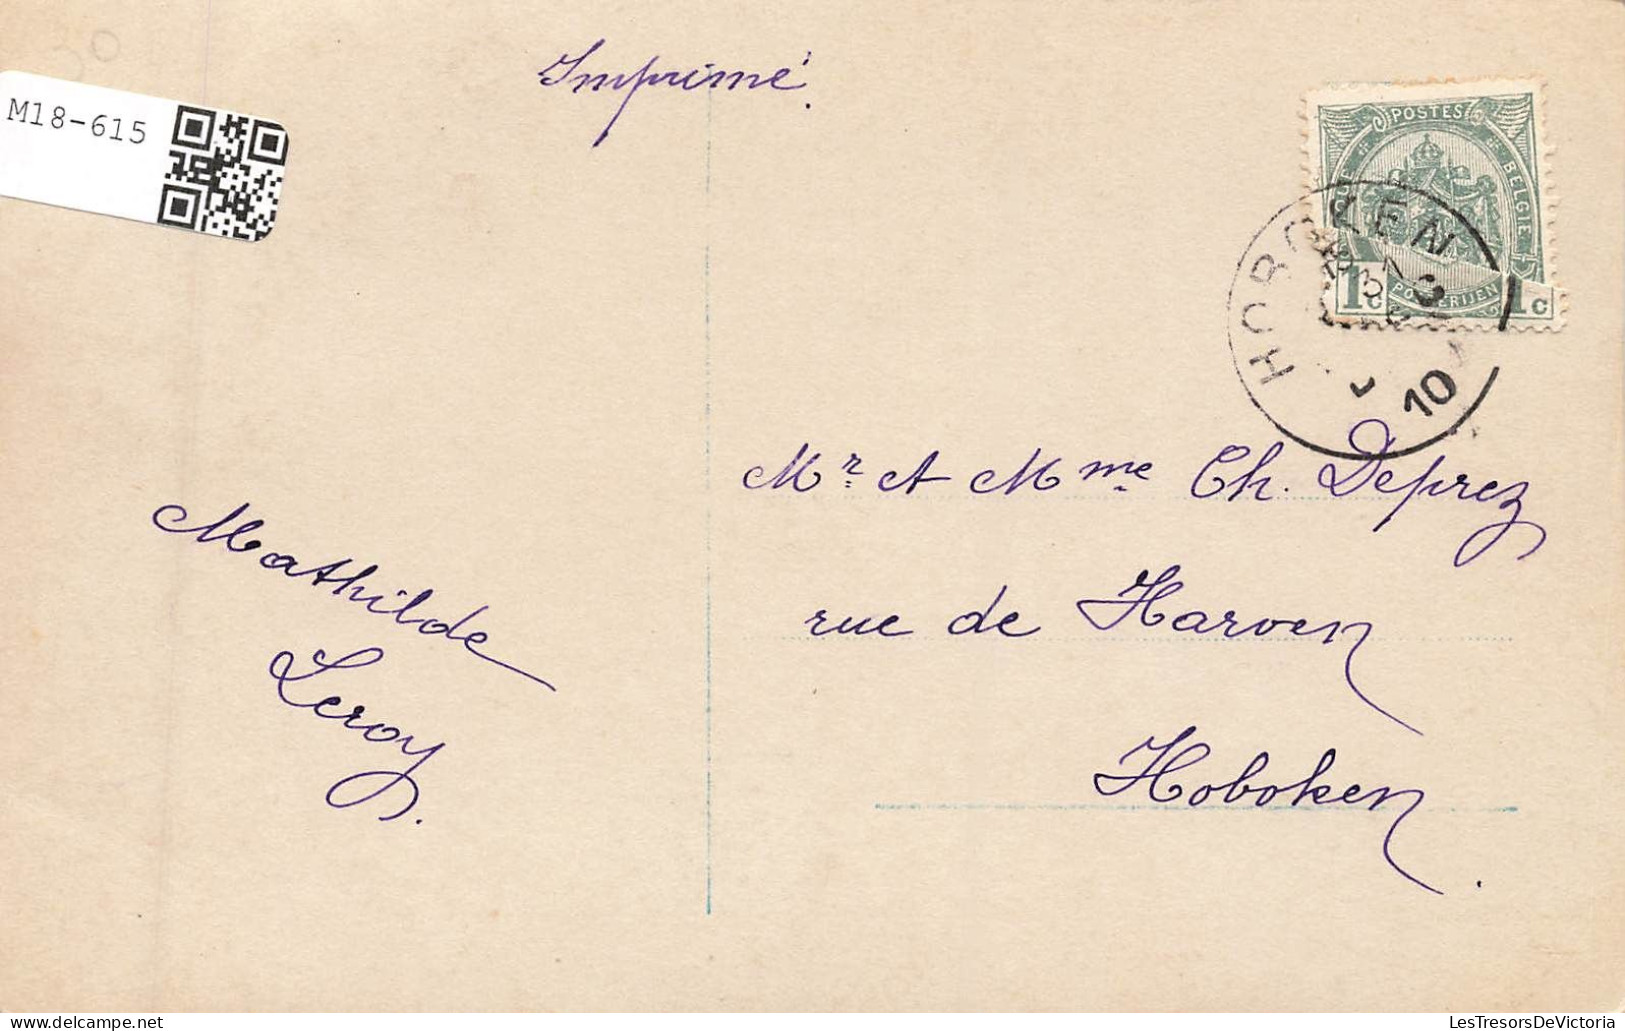 30
M18-615
Imprimé.
POSTES
BELGIQUE
1c POSTERIJEN 1c
HOBOKEN
10
Mr et Mme Ch. Deprez
rue de Harven
Hoboken.
Mathilde
Leroy.
LesTresorsDeVictoria